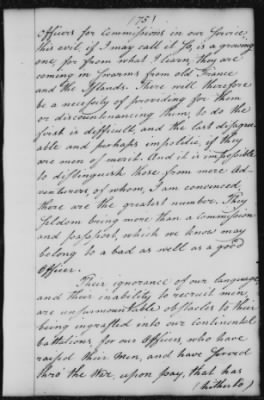 (75)
officers for Commissions in our Service;
this evil, if I may call it so, is a growing
one, for from what I learn, they are
coming in swarms from old France
and the Islands. There will therefore
be a necessity of providing for them
or discountenancing them, to do the
first is difficult, and the last disagree
able and perhaps impolitic, if they
are men of merit. And it is impossible
to distinguish those from mere Ad-
venturers, of whom, I am convinced,
there are the greatest number. They
seldom bring more than a Commission
and passport, which we know may
belong to a bad as well as a good
Officer.
Their ignorance of our language,
and their inability to recruit men,
are unsurmountable obstacles to their
being ingrafted into our continental
battalions, for our Officers, who have
raised their Men, and have served
thro' the War, upon pay, that has
(hitherto)